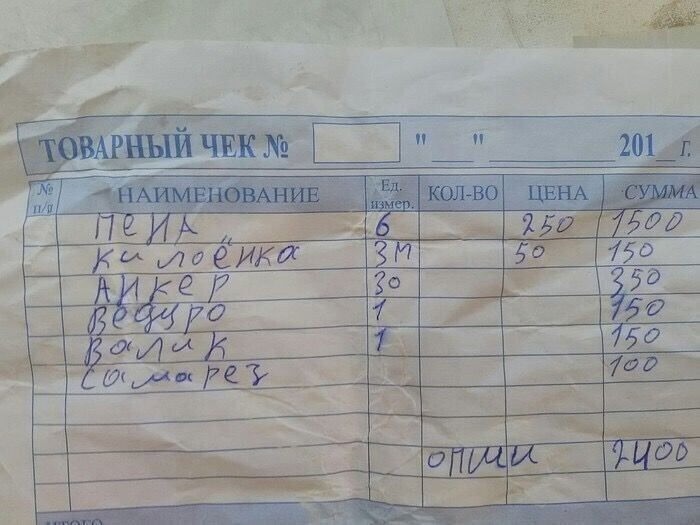 ТОВАРНЫЙ ЧЕК № "__" ________ 201__ г.
№ п/п НАИМЕНОВАНИЕ Ед. измер. КОЛ-ВО ЦЕНА СУММА
ПЕНА 6 250 1500
килоёнка 3м 50 150
АНКЕР 30 350
ВЕДУРО 1 150
ВАЛИК 1 150
Самарез 100
опши 2400
ИТОГО